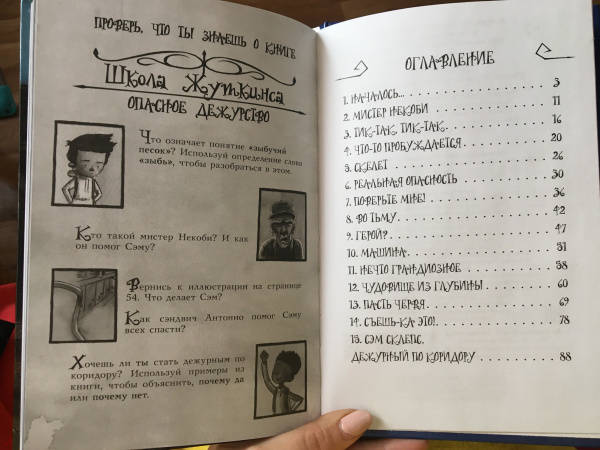 ПРОВЕРЬ, ЧТО ТЫ ЗНАЕШЬ О КНИГЕ
Школа Жуткинса
ОПАСНОЕ ДЕЖУРСТВО
Что означает понятие «зыбучий
песок»? Используй определение слова
«зыбь», чтобы разобраться в этом.
Кто такой мистер Некоби? И как
он помог Сэму?
Вернись к иллюстрации на странице
54. Что делает Сэм?
Как сэндвич Антонио помог Сэму
всех спасти?
Хочешь ли ты стать дежурным по
коридору? Используй примеры из
книги, чтобы объяснить, почему да
или почему нет.
ОГЛАВЛЕНИЕ
1. НАЧАЛОСЬ... 3
2. МИСТЕР НЕКОБИ 11
3. ТИК-ТАК, ТИК-ТАК. 16
4. ЧТО-ТО ПРОБУЖДАЕТСЯ 20
5. СКЕЛЕТ 26
6. РЕАЛЬНАЯ ОПАСНОСТЬ 30
7. ПОВЕРЬТЕ МНЕ! 36
8. ВО ТЬМУ 42
9. ГЕРОЙ? 47
10. МАШИНА 51
11. НЕЧТО ГРАНДИОЗНОЕ 58
12. ЧУДОВИЩЕ ИЗ ГЛУБИНЫ 60
13. ПАСТЬ ЧЕРВЯ 69
14. СЪЕШЬ-КА ЭТО! 78
15. СЭМ СКЛЕПС.
ДЕЖУРНЫЙ ПО КОРИДОРУ 88